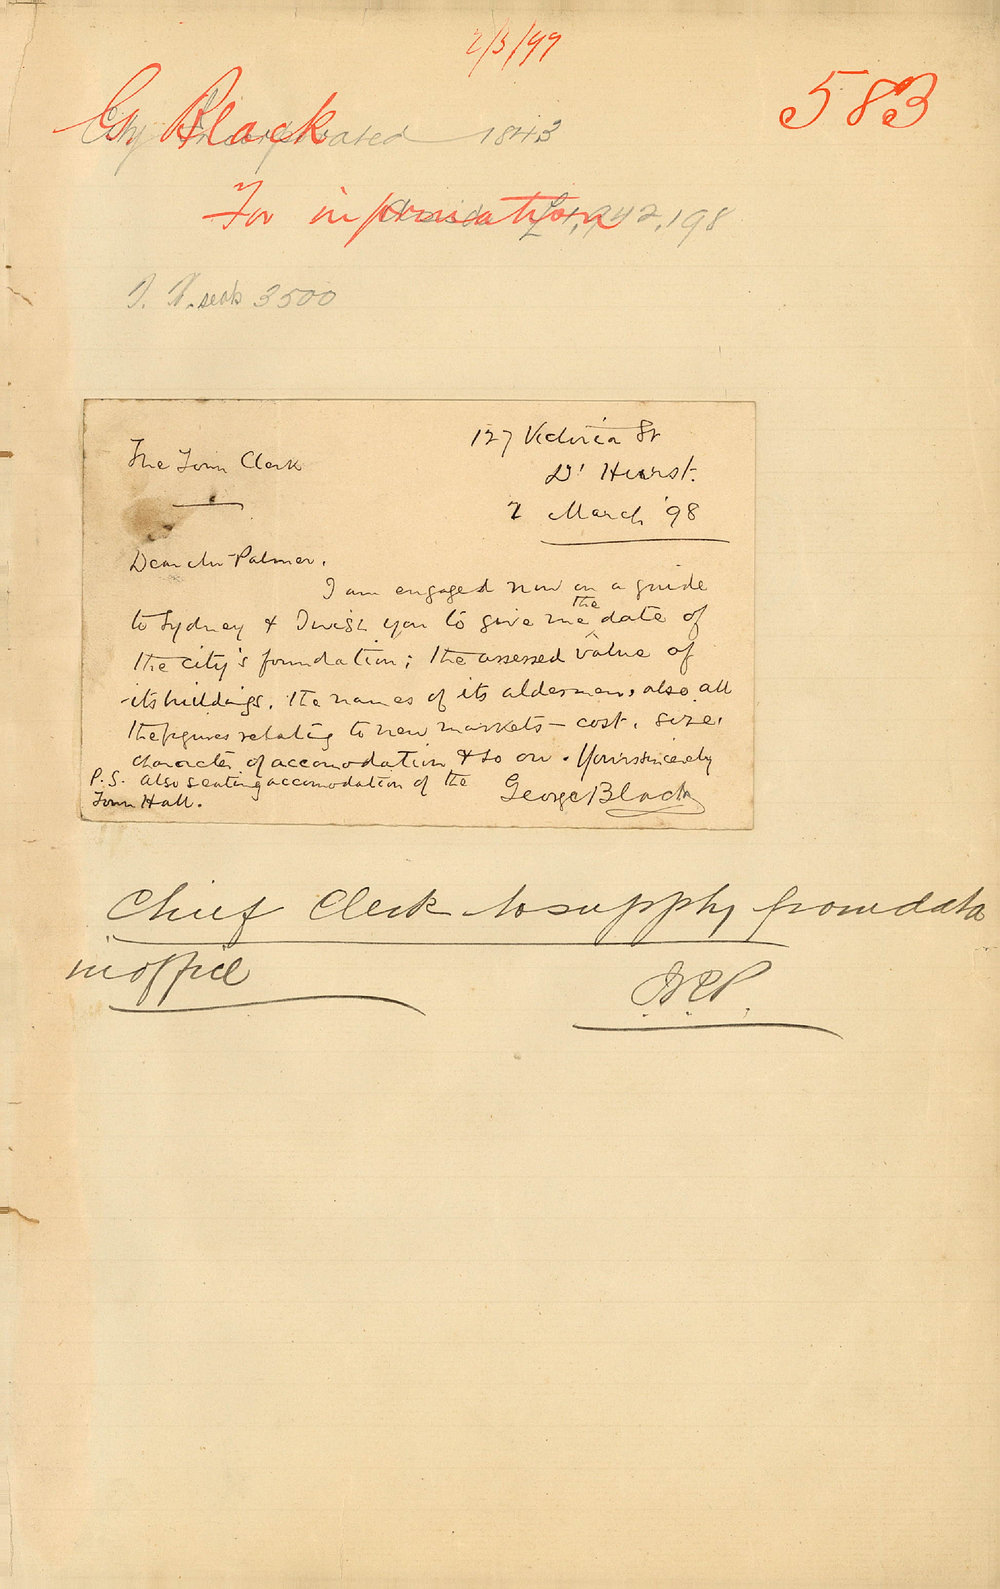 2/3/99
583
G Black
City Incorporated 1843
For information
£1,942,198
T. H. seats 3500
The Town Clerk
127 Victoria St
D' Hurst.
2 March '98
Dear Mr Palmer.
I am engaged now on a guide
to Sydney & I wish you to give me the date of
the city's foundation; the assessed value of
its buildings. the names of its aldermen, also all
the figures relating to new markets - cost, size,
character of accomodation & so on. Yours sincerely
George Black
P.S. also seating accomodation of the
Town Hall.
Chief Clerk to supply from data
in office